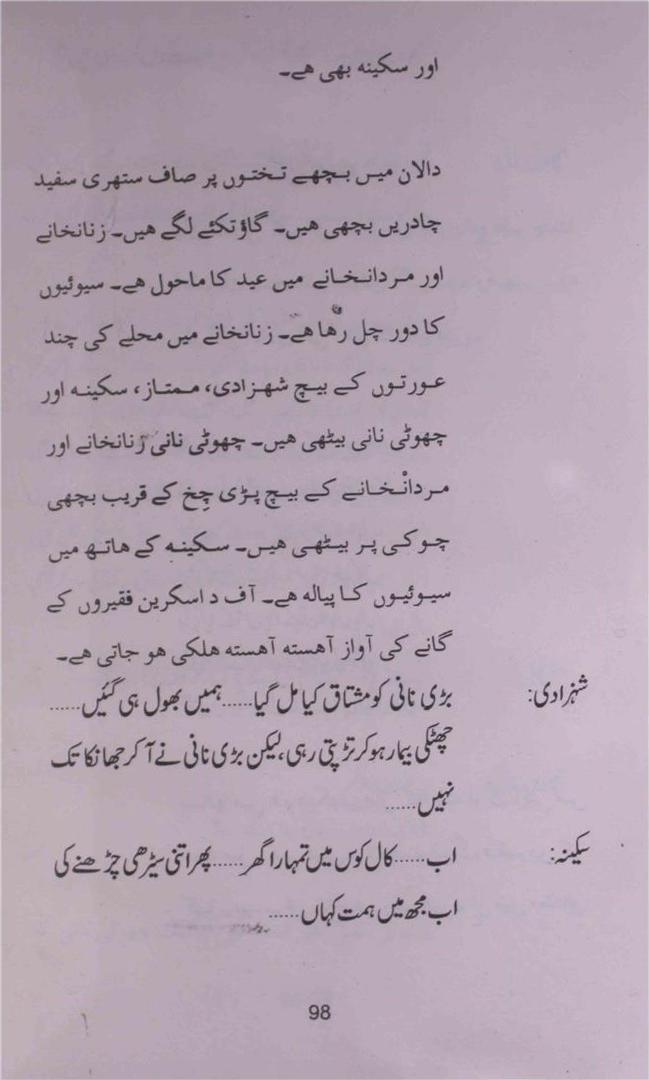 اور سکینہ بھی ہے۔
دالان میں بچھے تختوں پر صاف ستھری سفید
چادریں بچھی ہیں۔ گاؤ تکئے لگے ہیں۔ زنانخانے
اور مردانخانے میں عید کا ماحول ہے۔ سیوئیوں
کا دور چل رہا ہے۔ زنانخانے میں محلے کی چند
عورتوں کے بیچ شہزادی، ممتاز، سکینہ اور
چھوٹی نانی بیٹھی ہیں۔ چھوٹی نانی زنانخانے اور
مردانخانے کے بیچ پڑی چِخ کے قریب بچھی
چوکی پر بیٹھی ہیں۔ سکینہ کے ہاتھ میں
سیوئیوں کا پیالہ ہے۔ آف د اسکرین فقیروں کے
گانے کی آواز آہستہ آہستہ ہلکی ہو جاتی ہے۔
شہزادی: بڑی نانی کو مشتاق کیا مل گیا......ہمیں بھول ہی گئیں......
چھٹکی بیمار ہو کر تڑپتی رہی، لیکن بڑی نانی نے آ کر جھانکا تک
نہیں......
سکینہ: اب......کال کوس میں تمہارا گھر......پھر اتنی سیڑھی چڑھنے کی
اب مجھ میں ہمت کہاں......
98